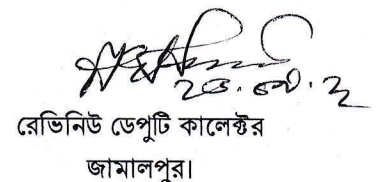 রেভিনিউ ডেপুটি কালেক্টর
জামালপুর।